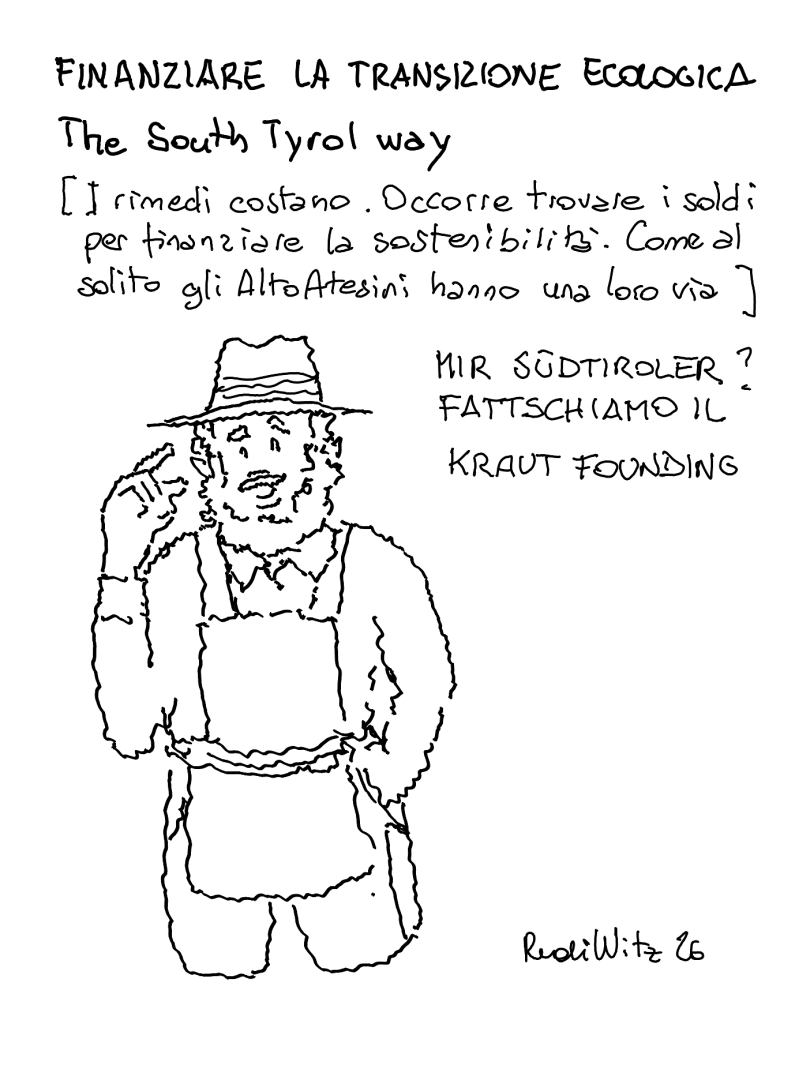 FINANZIARE LA TRANSIZIONE ECOLOGICA
The South Tyrol way
[I rimedi costano. Occorre trovare i soldi
per finanziare la sostenibilità. Come al
solito gli AltoAtesini hanno una loro via]
MIR SÜDTIROLER?
FATTSCHIAMO IL
KRAUT FOUNDING
RudiWitz 26